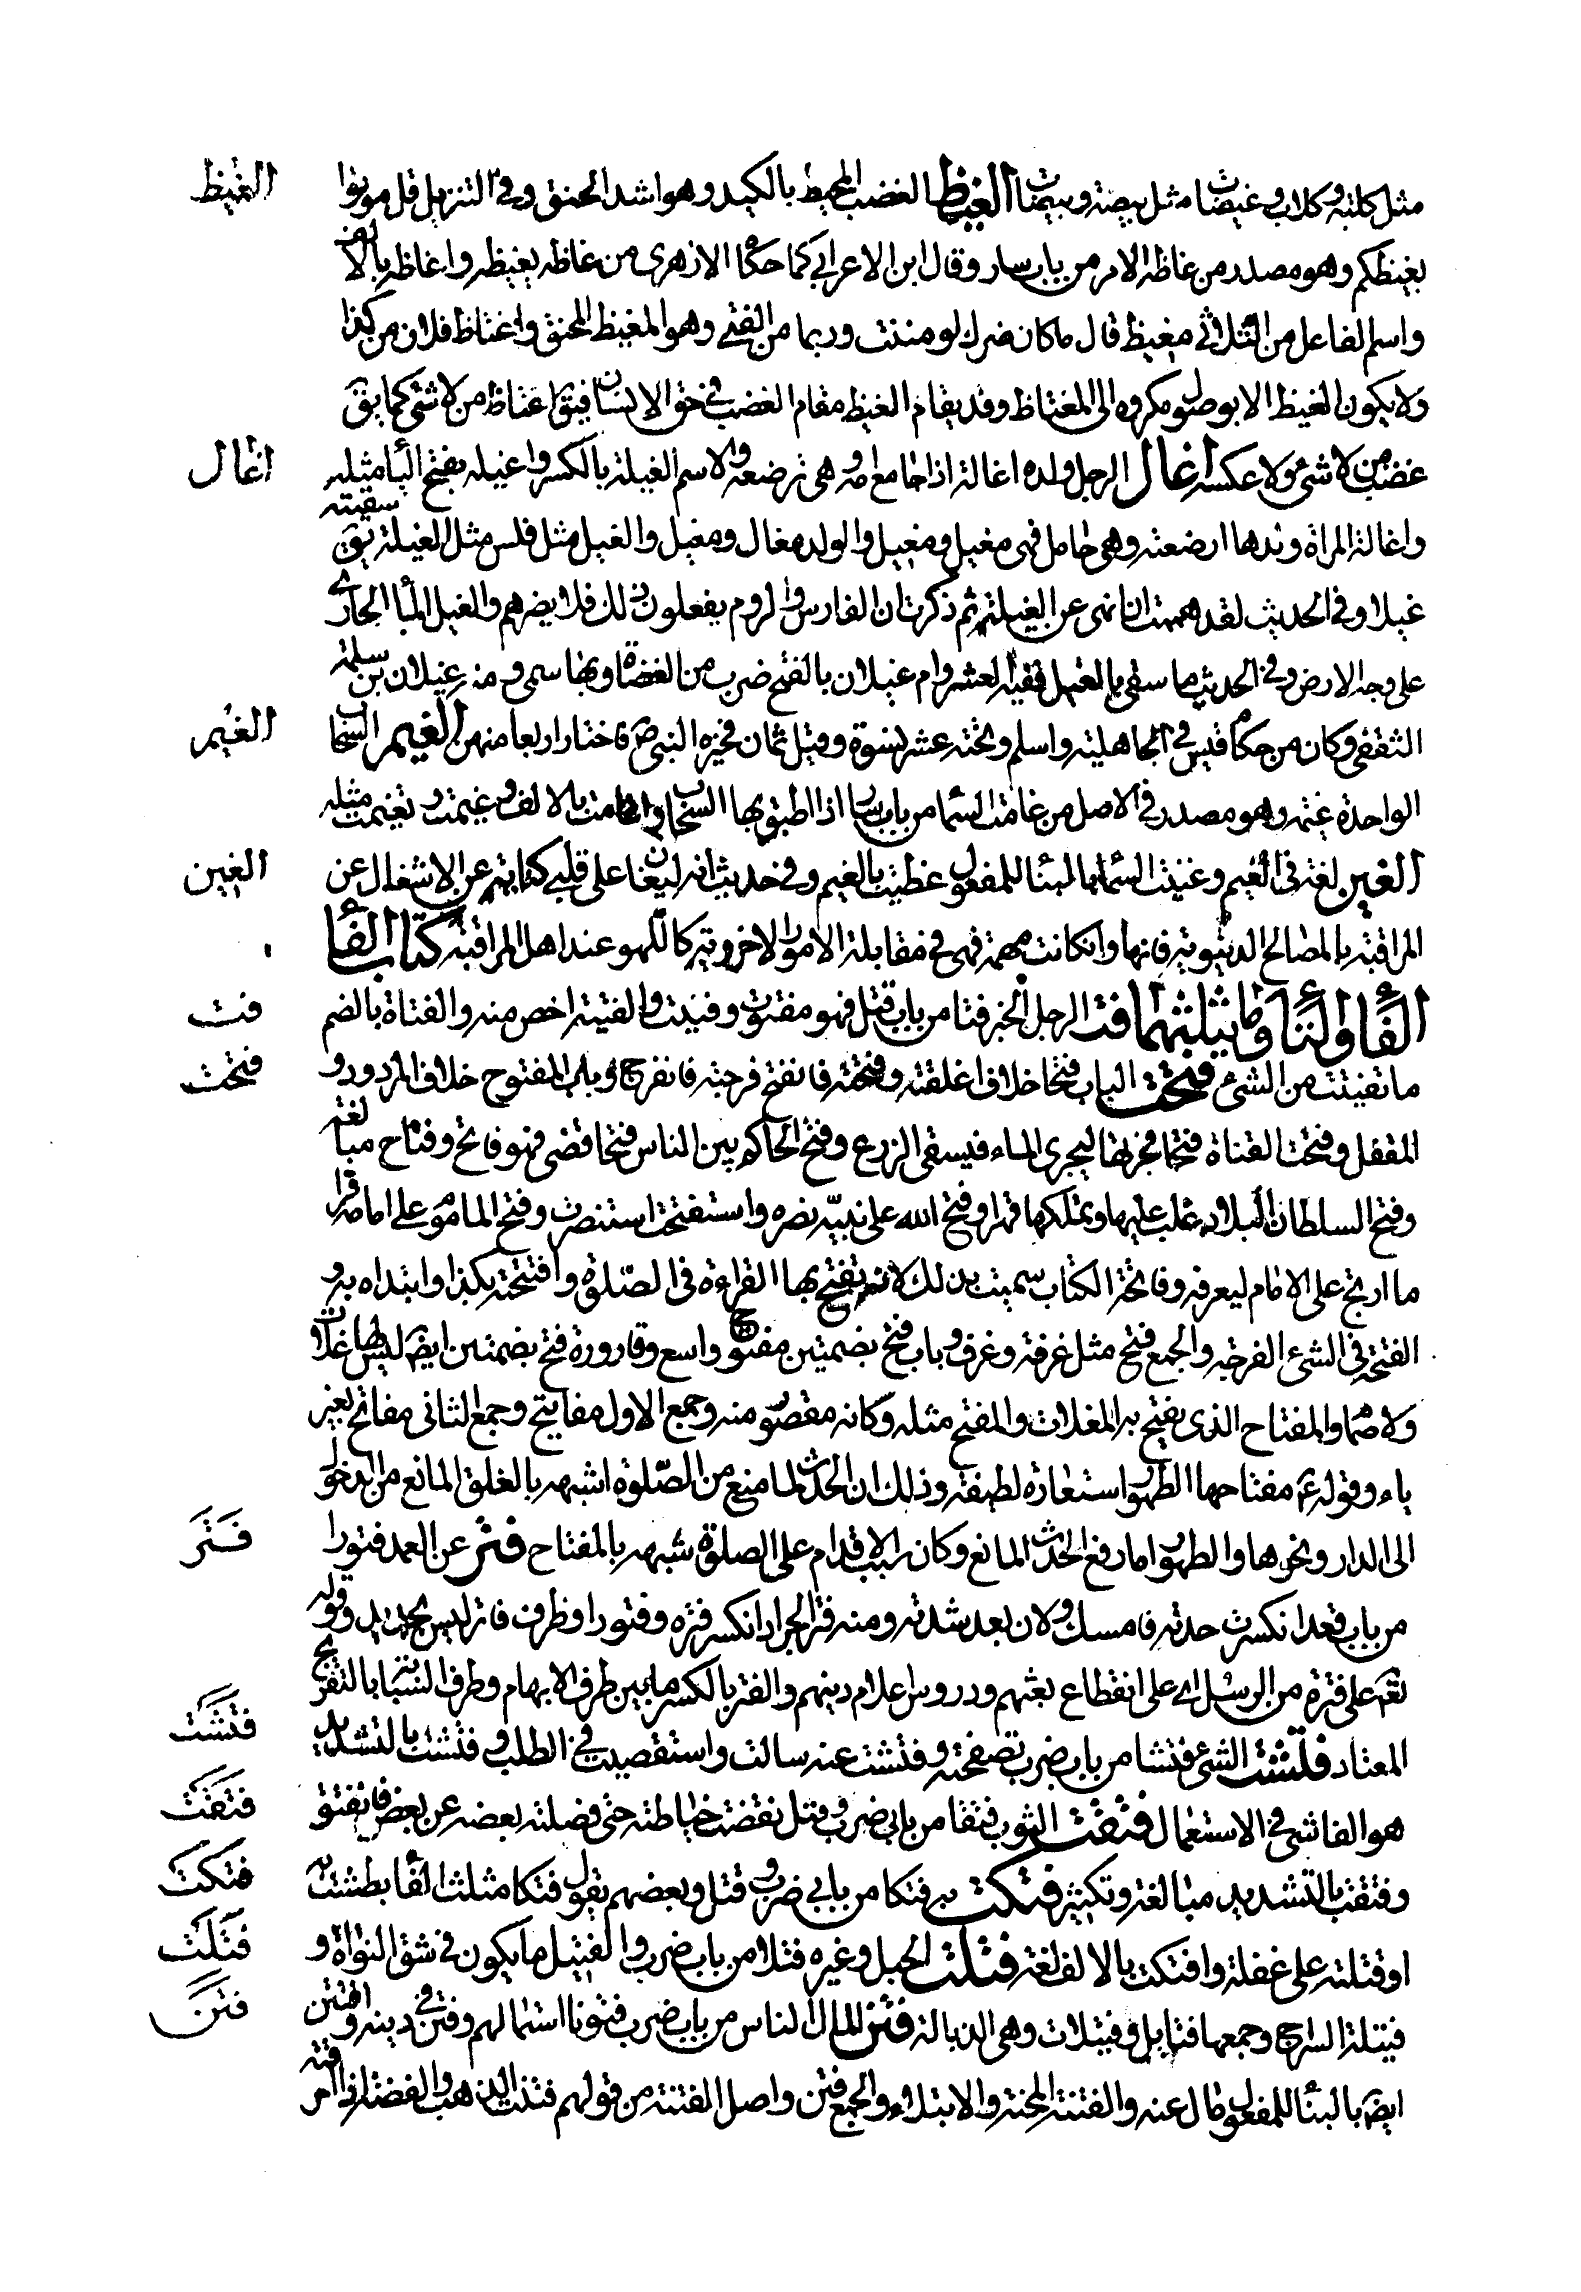 مثل كلبة وكلاب وغيضات مثل بيضة وبيضات الغيظ الغضب المحيط بالكبد وهو اشد الحنق وفى التنزيل قل موتوا
الغيظ
بغيظكم وهو مصدر من غاظه الامر من باب سار وقال ابن الاعرابي كما حكاه الازهرى من غاظه يغيظه واغاظه بالالف
واسم المفاعل من الثلاثي مغيظ قال ما كان ضرك لو مننت وربما من الفتى وهو المغيظ المحنق واغتاظ فلان من كذا
ولا يكون الغيظ الا بوصول مكروه الى المغتاظ وقد يقام الغيظ مقام الغضب في حق الانسان فيق اغتاظ من لا شئ كما يق
غضب من لا شئ ولا عكسه اغال الرجل ولده اغالة اذا جامع امه وهى ترضعه والاسم الغيلة بالكسر واغيله بفتح اليا مثله
اغال
واغالة المراة ولدها ارضعته وهى حامل فهى مغيل ومغيل والولد مغال ومغيل والغيل مثل فلس مثل الغيلة يق سقيته
غيلا وفى الحديث لقد هممت ان انهى عن الغيلة ثم ذكرت ان الفارس والروم يفعلون ذلك فلا يضرهم والغيل الماأ الجارى
على وجه الارض وفى الحديث ما سقى بالغيل ففيه العشر وام غيلان بالفتح ضرب من العضاة وبها سمى ومنه غيلان بن سلمة
الثقفى وكان من حكام قيس في الجاهلية واسلم وتحته عشر نسوة وقيل ثمان فخيره النبى ص فاختار اربعا منهن الغيم السحاب
الغيم
الواحدة غيمة وهو مصدر فى الاصل من غامت السما من باب سار اذا اطبق بها السحاب واغامت بالالف وغيمت وتغيمت مثله
الغين لغة فى الغيم وغينت السما بالبنأ للمفعول غطيت بالغيم وفى حديث انه ليغان على قلبى كناية عن الاشتغال عن
الغين
المراقبة بالمصالح الدنيوية فانها وان كانت مهمة فهى في مقابلة الامور الاخروية كاللهو عند اهل المراقبة كتاب الفأ
الفأ والتأ وما يثلثهما فت الرجل الخبز فتا من باب قتل فهو مفتوت وفتيت والفتيتة اخص منه والفتاة بالضم
فت
ما تفتت من الشئ فتحت الباب فتحا خلاف اغلقته وفتحته فانفتح فرجته فانفرج وباب المفتوح خلاف المردود و
فتحت
المقفل وفتحت القناة فتحا فجرتها ليجرى الماء فيسقى الزرع وفتح الحاكم بين الناس فتحا قضى فهو فاتح وفتاح مبالغة
وفتح السلطان البلاد غلب عليها وتملكها قهرا وفتح الله على نبيه نصره واستفتحت استنصرت وفتح الماموم على امامه قرا
ما ارتج على الامام ليعرفه وفاتحة الكتاب سميت بذلك لانه يفتتح بها القراءة فى الصلوة وافتتحته بكذا وابتداه به و
الفتحة فى الشئ الفرجة والجمع فتح مثل غرفة وغرف وباب فتح بضمتين مفتوح واسع وقارورة فتح بضمتين ايضا ليس لها غلاف
ولا صمام والمفتاح الذى يفتح به المغلاق والمفتح مثله وكانه مقصور منه وجمع الاول مفاتيح وجمع الثانى مفاتح بغير
ياء وقوله ع مفتاحها الطهور استعارة لطيفة وذلك ان الحدث لما منع من الصلوة اشبهه بالغلق المانع من الدخول
الى الدار ونحوها والطهور لما رفع الحدث المانع وكان سبب الاقدام على الصلوة شبهه بالمفتاح فتر عن العمد فتورا
فتر
من باب قعد انكسرت حدته فامسك ولان بعد شدته ومنه فتر الحر اذا انكسر فترة وفتورا وظرف فاتر ليس بحديد وقوله
تعم على فترة من الرسل اى على انقطاع بعثهم ودروس اعلام دينهم والفتر بالكسر ما بين طرف الابهام وطرف السبابة بالتفريج
المعتاد فتشت الشئ فتشا من باب ضرب تصفحته وفتشت عنه سالت واستقصيت في الطلب وفتشت بالتشديد
فتشت
هو الفاشى في الاستعمال فتقت الثوب فتقا من بابى ضرب وقتل نقضت خياطته حتى فصلته بعضه عن بعض فانفتق
فتقت
وفتقت بالتشديد مبالغة وتكثير فتكت به فتكا من بابى ضرب وقتل وبعضهم يقول فتكا مثلث الفأ بطشت به
فتكت
او قتلته على غفلة وافتكت بالالف لغة فتلت الحبل وغيره فتلا من باب ضرب والفتيل ما يكون فى شق النواة و
فتلت
فتيلة السراج وجمعها فتايل وفتيلات وهى الذبالة فتن المال الناس من باب ضرب فتونا استمالهم وفتن فى دينه وافتتن
فتن
ايضا بالبنأ للمفعول مال عنه والفتنة المحنة والابتلاء والجمع فتن واصل الفتنة من قولهم فتنت الذهب والفضة اذا احرقته